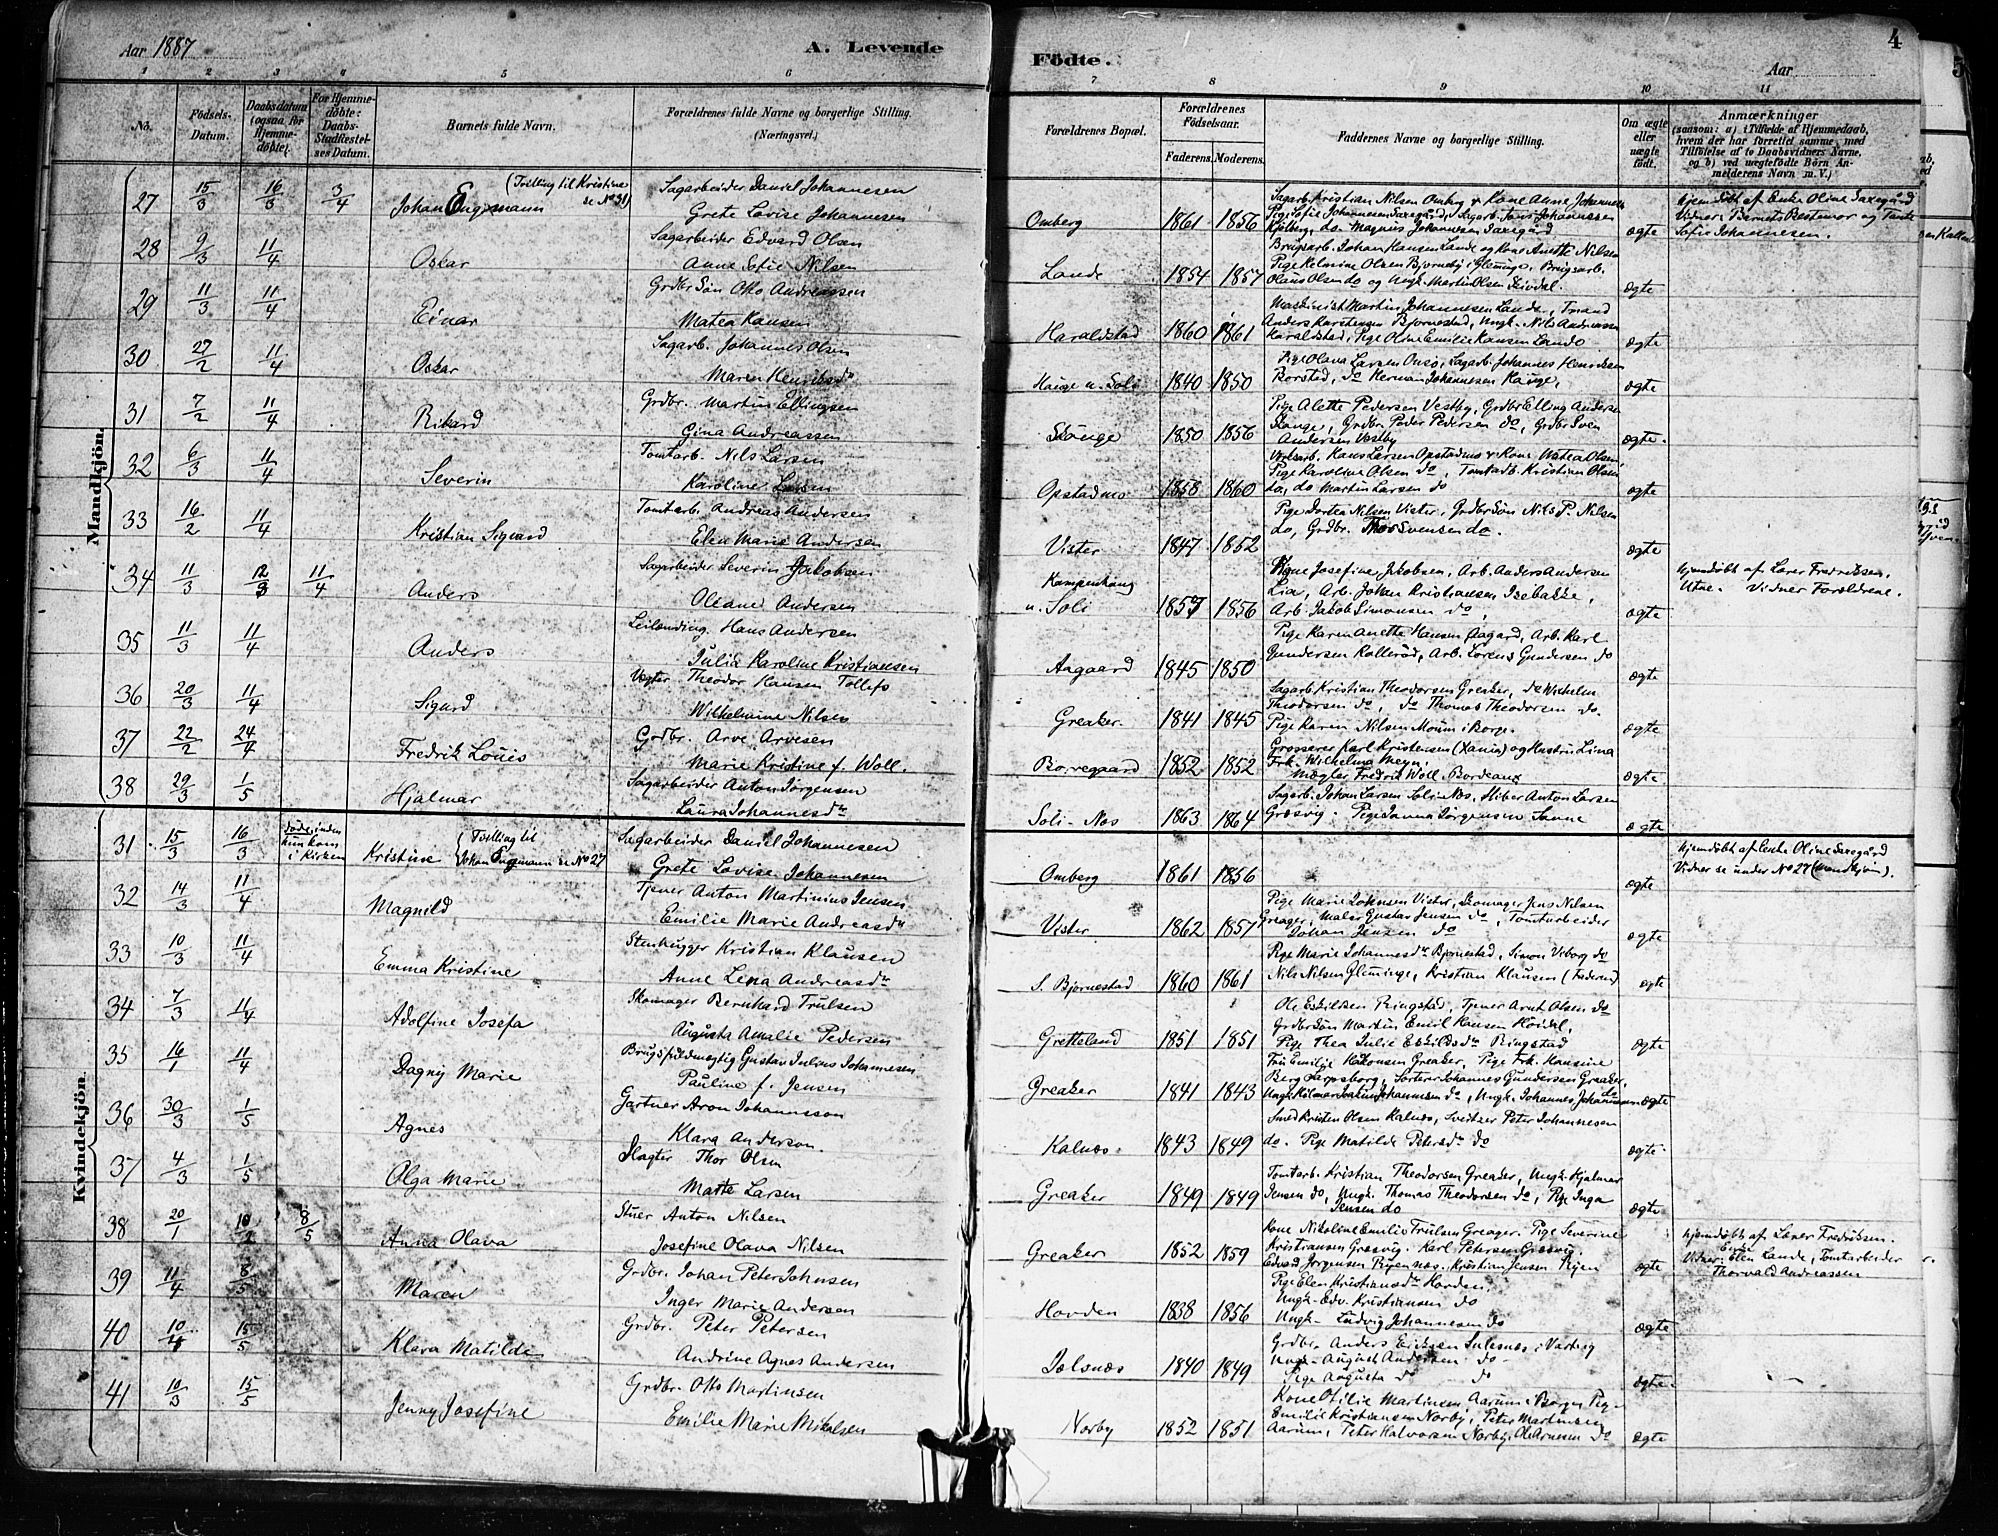 Aar 1887
A. Levende
Födte.
Aar
4
5
1 2 3 4 5 6 7 8 9 10 11
No. Födsels-Datum. Daabsdatum (ogsaa for Hjemme-döbte). For Hjemme-döbte: Daabs-Stadfæstel-ses Datum. Barnets fulde Navn. Forældrenes fulde Navne og borgerlige Stilling. (Næringsvei.) Forældrenes Bopæl. Forældrenes Födselsaar. Faderens. Moderens. Faddernes Navne og borgerlige Stilling. Om ægte eller uægte födt. Anmærkninger (saasom: a) i Tilfælde af Hjemmedaab, hvem der har forrettet samme, med Tilföielse af to Daabsvidners Navne, og b) ved uægtefödte Börn An-melderens Navn m. V.)
Mandkjön.
27 15/3 16/3 3/4 Johan Engemann (Tvilling til Kristine se No 31) Sagarbeider Daniel Johannesen
Grete Lovise Johannesen Omberg 1861 1856 ægte
Sagarb. Kristian Nilsen Omberg & Kone Anne Johannesen
Pige Sofie Johannesen Saxegård, Sagarb. Jens Johannessen
Kjölberg, do Magnus Johannesen Saxegård
Hjemdöbt af Enke Oline Saxegård
Vidner: Barnets Bestemor og Tante
Sofie Johannesen.
28 9/3 11/4 Oskar Sagarbeider Edvard Olsen
Anne Sofie Nilsen Lande 1854 1857 ægte
Brugsarb. Johan Hansen Lande og Kone Anette Nilsen
Pige Olsen Bjørneby i Gleminge, Brugsarb.
Olaus Olsen do og Ungk. Martin Olsen
29 11/3 11/4 Einar Grdbr Søn Otto Andreassen
Matea Hansen Haraldstad 1860 1861 ægte
Maskinist Martin Johannesen Lande,
Anders Karstensen Bjørnestad, Ungk. Nils Andreassen
Haraldstad, Pige Oline Emilie Hansen Lande
30 27/2 11/4 Oskar Sagarb. Johannes Olsen
Maren Henriksdr Hauge u. Soli 1840 1850 ægte
Pige Olava Larsen Onsø, Sagarb. Johannes Henriksen
Borstad, do Herman Johannesen Hauge,
31 7/2 11/4 Rikard Grdbr. Martin Ellingsen
Gina Andreassen Skånge 1850 1856 ægte.
Pige Alette Pedersen Vestby, Grdbr Elling Andersen
Skånge, Grdbr. Peder Pedersen do, Grdbr Sven
Andersen Vestby
32 6/3 11/4 Severin Tomtarb. Nils Larsen
Karoline Larsen Opstadmo 1858 1860 ægte
Hans Larsen Opstadmo & Kone Matea Olsen,
Pige Karoline Olsen do, Tomtarb. Kristian Olsen
do, do Martin Larsen do
33 16/2 11/4 Kristian Sigvard Tomtarb. Andreas Andersen
Elen Marie Andersen Vister 1847 1852 ægte
Pige Dortea Nilsen Vister, Grdbr Søn Nils P. Nilsen
do, Grdbr. Thor Svensen do.
34 11/3 12/3 11/4 Anders Sagarbeider Severin Jakobsen
Oleane Andersen Kampenhaug
u. Soli 1857 1856 ægte
Kone Josefine Jakobsen, Arb. Anders Andersen
Lia, Arb. Johan Kristiansen Isebakke,
Arb. Jakob Simonsen do,
Hjemdöbt af Lærer Fredriksen,
Utne. Vidner Forældrene.
35 11/3 11/4 Anders Leilænding. Hans Andersen
Julia Karoline Kristiansen Aagaard 1845 1850 ægte
Pige Karen Anette Hansen Aagard, Arb. Karl
Gundersen Rollerød, Arb. Lorens Gundersen do
36 20/3 11/4 Sigurd Vægter Theodor Hansen Tollefs
Wilhelmine Nilsen Greaker. 1841 1845 ægte
Sagarb. Kristian Theodorsen Greaker, do Wilhelm
Theodorsen do, do Thomas Theodorsen do.
Pige Karen Nilsen Moum i Borge.
37 22/2 24/4 Fredrik Louis Grdbr. Arve Arvesen
Marie Kristine f. Woll. Borregaard 1852 1852 ægte
Grosserer Karl Kristensen (Xania) og Hustru Lina
Frk. Wilhelma Meyn,
Mægler Fredrik Woll. Bordeaux
38 29/3 1/5 Hjalmar Sagarbeider Anton Jørgensen
Laura Johannesdr Soli-Nes 1863 1864 ægte
Sagarb. Johan Larsen Soli-Nes, Stiber Anton Larsen
Græsvig. Pige Janna Jörgensen Sanne
Kvindekjön.
31 15/3 16/3 döde inden hun kom i Kirken Kristine (Tvilling til Johan Engemann se No 27 Sagarbeider Daniel Johannesen
Grete Lovise Johannesen Omberg 1861 1856 ægte
Hjemdöbt af Enke Oline Saxegård
Vidner se under No 27 (Mandkjön).
32 14/3 11/4 Magnild Tjener Anton Martinius Jensen
Emilie Marie Andreasdr Vister 1862 1857 ægte
Pige Marie Johnsen Vister, Skomager Jens Nilsen
Greager, Maler Gustav Jensen do, Tomtarbeider
Johan Jensen do
33 10/3 11/4 Emma Kristine Stenhugger Kristian Klausen
Anne Lena Andreasdr S. Bjørnestad 1860 1861 ægte
Pige Marie Johannesdr Bjørnestad, Simon Viborg do
Nils Nilsen Glemminge, Kristian Klausen (Faderen)
34 7/3 11/4 Adolfine Josefa Skomager Bernhard Trulsen
Augusta Amalie Pedersen Gretteland 1851 1851 ægte
Ole Eskildsen Ringstad, Tjener Arnt Olsen do
Grdbr Søn Martin Emil Hansen Hoidal,
Pige Thea Julie Eskildsdr Ringstad
35 16/1 11/4 Dagny Marie Brugsfuldmægtig Gustav Julius Johannesen
Pauline f. Jensen Greaker 1841 1843 ægte
Fru Emilie Håkonsen Greaker, Pige Frk. Hansine
Berg Sarpsborg, Sorterer Johannes Gundersen Greaker,
Ungk. Hilmar Joakim Johannesen do, Ungk. Johannes Johannesen do
36 30/3 1/5 Agnes Gartner Aron Johannsson
Klara Anderson. Kalnæs 1843 1849 ægte.
Smed Kristen Olsen Kalnæs, Sveitser Peter Johannesen
do. Pige Matilde Petersdr do
37 4/3 1/5 Olga Marie Slagter Thor Olsen
Marte Larsen Greaker 1849 1849 ægte
Tomtarb. Kristian Theodorsen Greaker, Ungk. Hjalmar
Jensen do, Ungk. Thomas Theodorsen do, Pige Inga
Jensen do
38 20/1 10/2 8/5 Anna Olava Stuer Anton Nilsen
Josefine Olava Nilsen Greaker 1852 1859 ægte
Kone Nikoline Emilie Trulsen Greager. Pige Severine
Kristiansen Græsvig. Karl Petersen Græsvig.
Edvard Jørgensen Rijennæs. Kristian Jensen Rijen
Hjemdöbt af Lærer Fredriksen.
Vidner: Enke Elen Lande, Tomtarbeider
Thorvald Andreassen
39 11/4 8/5 Maren Grdbr. Johan Peter Johnsen
Inger Marie Andersen Hovden 1838 1856 ægte
Pige Elen Kristiansdr Hovden,
Ungk. Edv. Kristiansen do
Ungk. Ludvig Johannesen do
40 10/4 15/5 Klara Matilde Grdbr. Peter Petersen
Andrine Agnes Andersen Jelsnæs 1840 1849 ægte.
Grdbr. Anders Eriksen Julesnæs i Varteig
Ungk. August Andersen do
Pige Augusta do do
41 10/3 15/5 Jenny Josefine Grdbr. Otto Martinsen
Emilie Marie Mikalsen Norby 1852 1851 ægte
Kone Otilie Martinsen, Aarum i Borge, Pige
Emilie Kristiansen Norby, Peter Martinsen
Aarum, Peter Halvorsen Norby, Ole Arnesen do